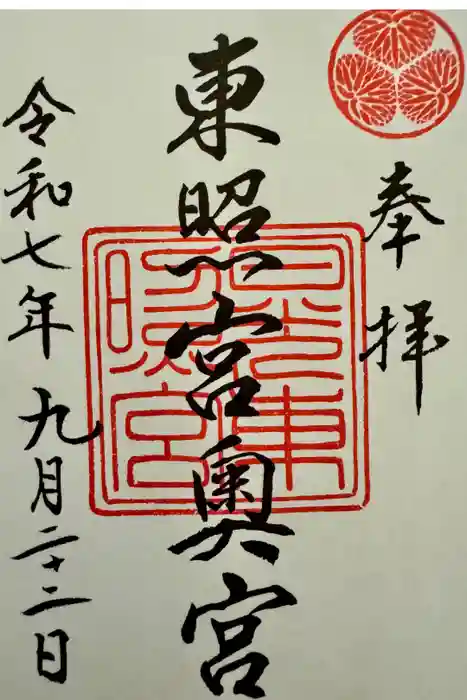 奉拝
東照宮奥宮
日光東
照宮
令和七年九月二十二日